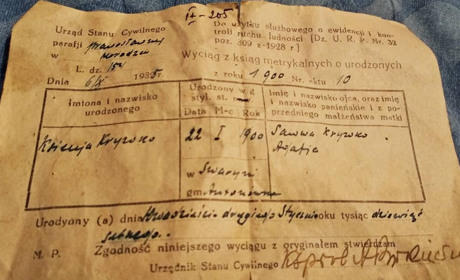 IX-205
Urząd Stanu Cywilnego
Do użytku służbowego o ewidencji i kon-
parafji prawosławnej
troli ruchu ludności [Dz. U. R. P. Nr. 32
poz. 309 z 1928 r]
Wyciąg z ksiąg metrykalnych o urodzonych
L. dz.
Dnia 6/IX 1935 r.
z roku 1900 Nr. aktu 10
Imiona i nazwisko urodzonego
Urodzony w g styl. st.
Data M-c Rok
Imię i nazwisko ojca, oraz imię i nazwisko panieńskie i z po- przedniego małżeństwa matki
Ksienja Krywko
22 I 1900
Sawwa Krywko
Agafja
w Swaryni
gm. Antonówka
Urodzony (a) dnia dwudziestego drugiego Stycznia roku tysiąc dziewięć
setnego.
M. P. Zgodność niniejszego wyciągu z oryginałem stwierdzam
Urzędnik Stanu Cywilnego